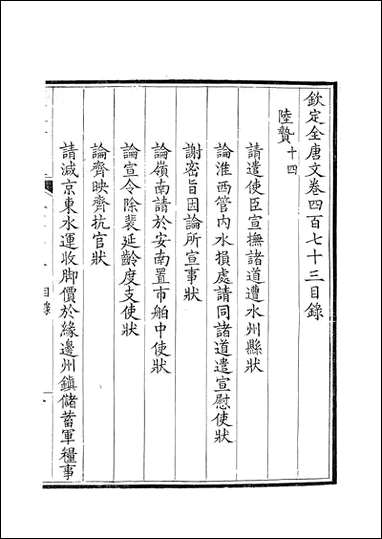 欽定全唐文卷四百七十三目錄
陸贄十四
請遣使臣宣撫諸道遭水州縣狀
論淮西管內水損處請同諸道遣宣慰使狀
謝密旨因論所宣事狀
論嶺南請於安南置市舶中使狀
論宣令除裴延齡度支使狀
論齊映齊抗官狀
請減京東水運收脚價於緣邊州鎮儲蓄軍糧事
目錄
一